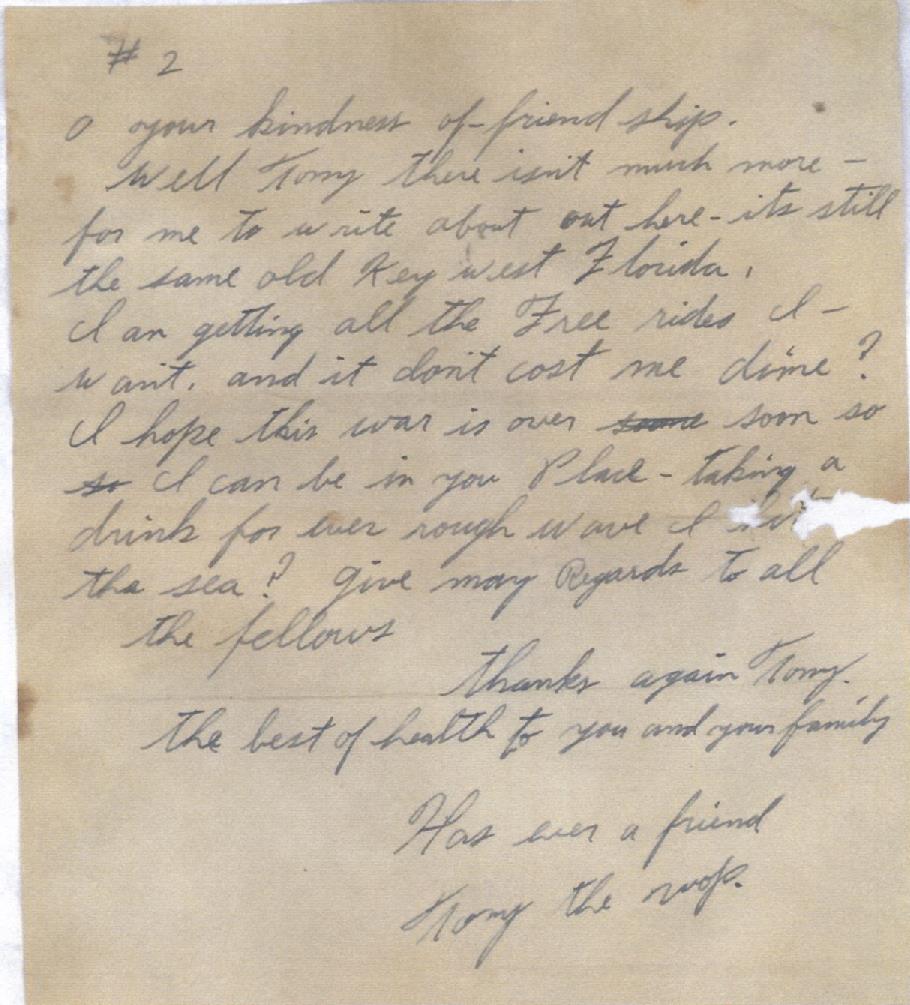 # 2
o your kindness of-friend ship.
Well Tony there isn't much more -
for me to write about out here - its still
the same old Key west Florida.
I an getting all the Free rides I -
want. and it don't cost me dime?
I hope this war is over some soon so
so I can be in you Place - taking a
drink for ever rough wave I
the sea? Give may Regards to all
the fellows
thanks again Tony.
the best of health to you and your family
Has ever a friend
Tony the wop.